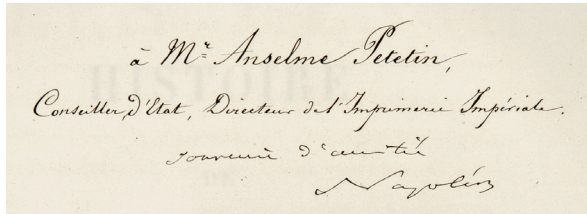 à Mr Anselme Petetin,
Conseiller d'Etat, Directeur de l'Imprimerie Impériale.
souvenir d'amitié
Napoléon